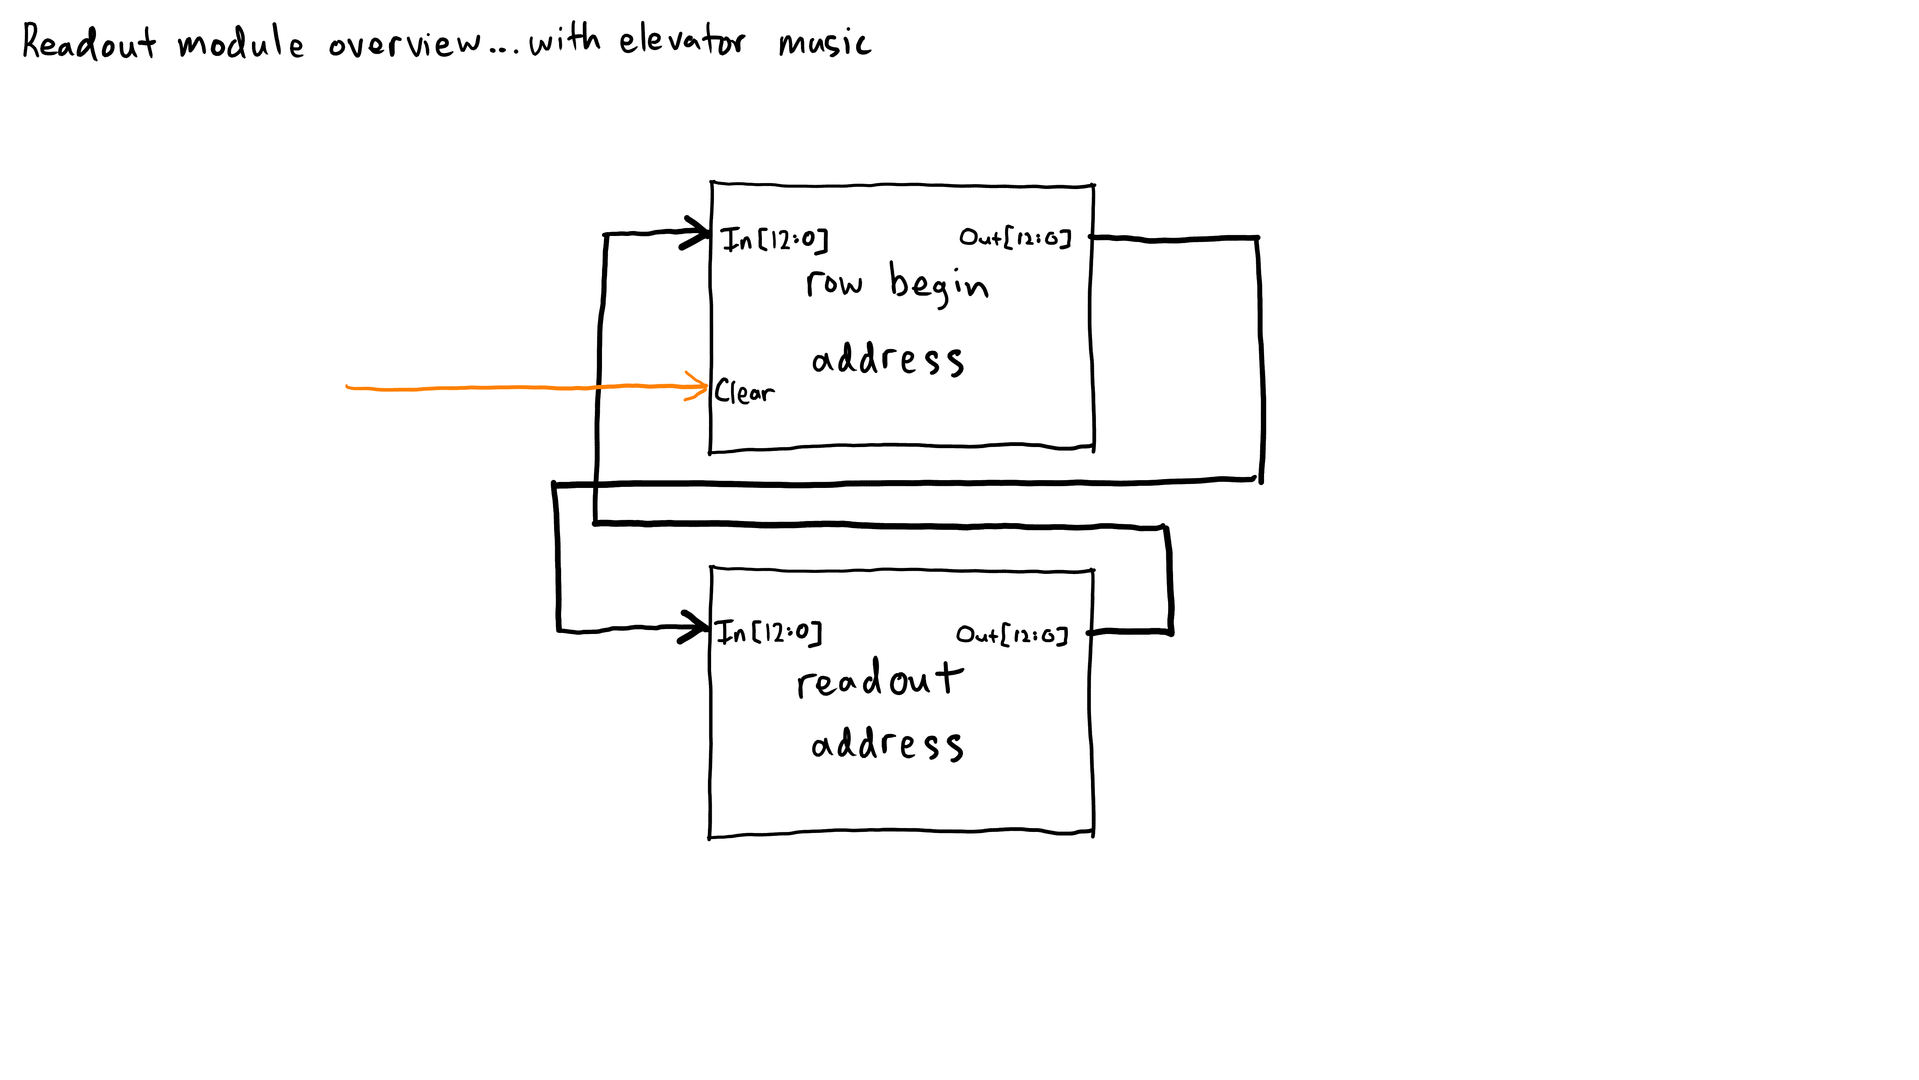 Readout module overview...with elevator music
In[12:0] Out[12:0]
row begin
address
Clear
In[12:0] Out[12:0]
readout
address